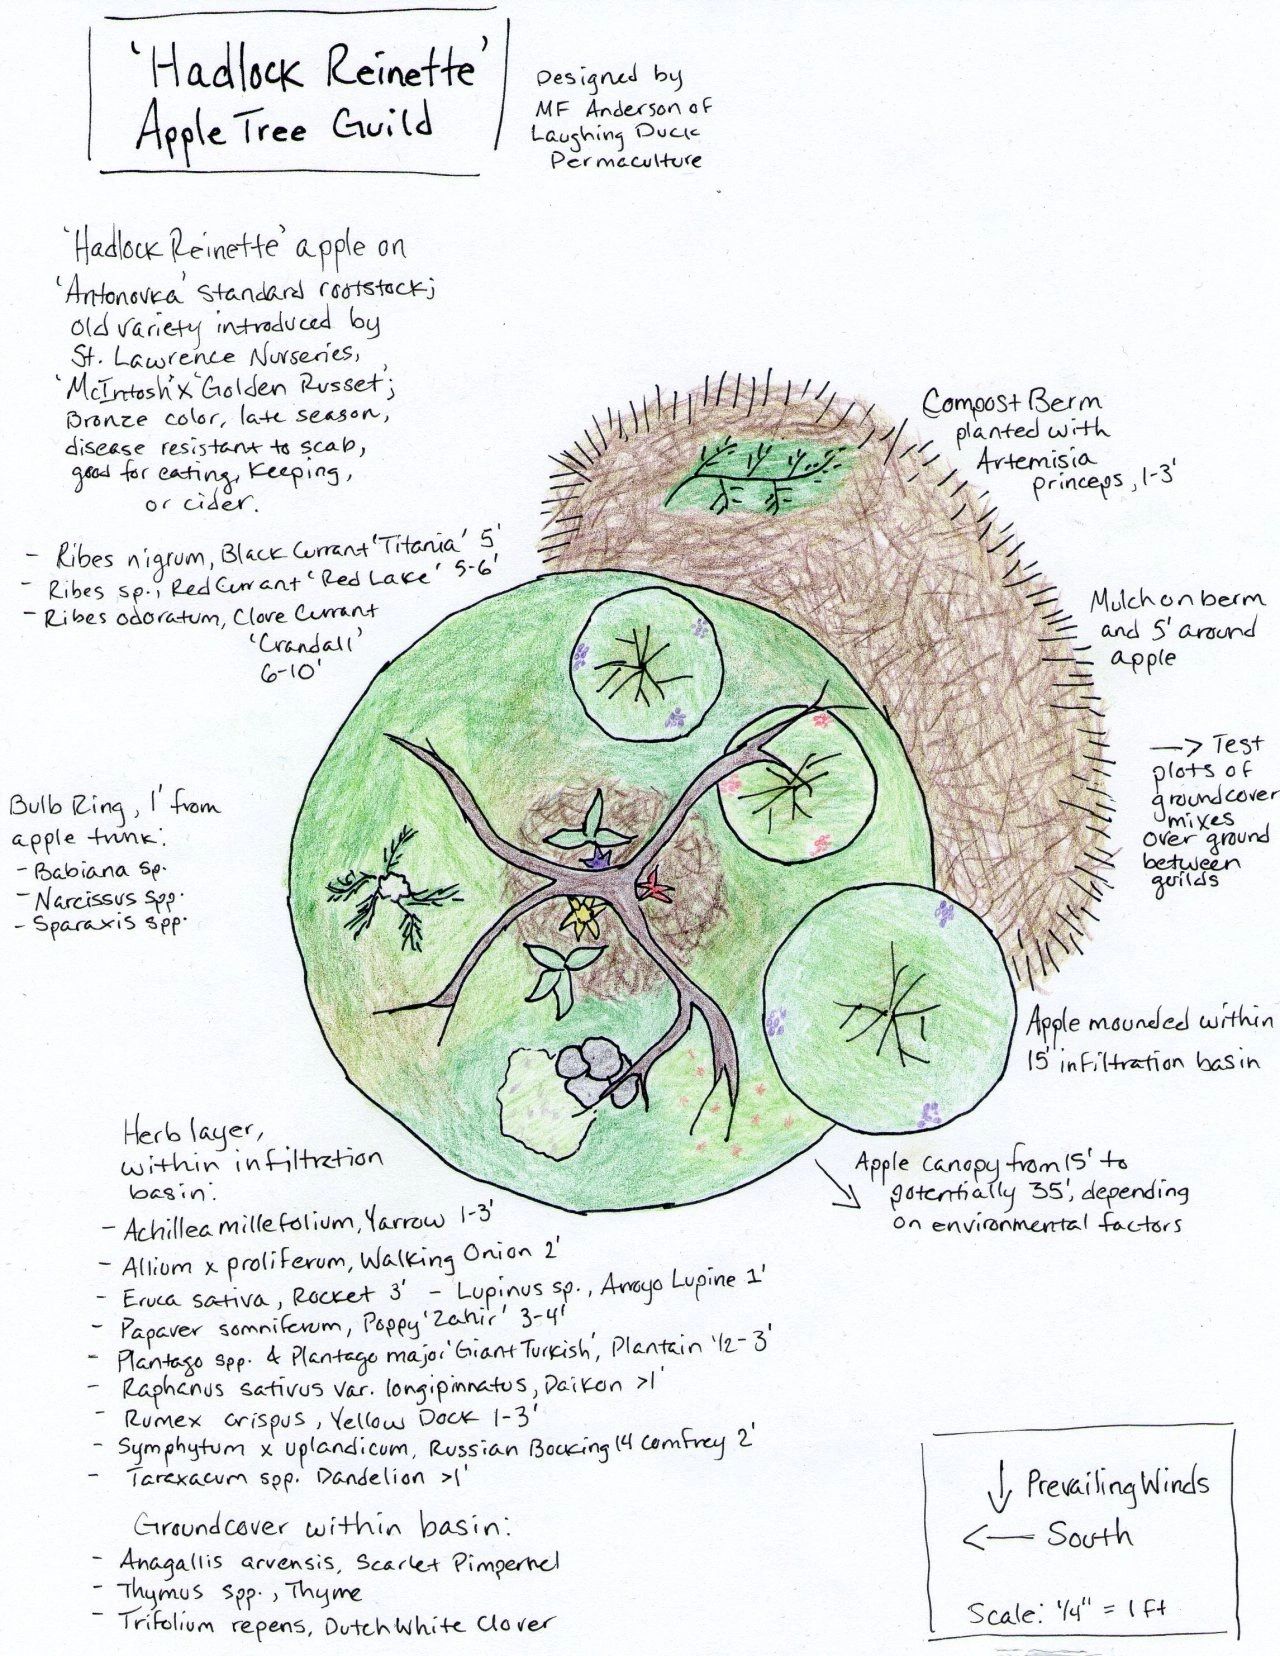 'Hadlock Reinette'
Apple Tree Guild
Designed by
MF Anderson of
Laughing Duck
Permaculture
'Hadlock Reinette' apple on
'Antonovka' standard rootstock;
old variety introduced by
St. Lawrence Nurseries,
'McIntosh' x 'Golden Russet';
Bronze color, late season,
disease resistant to scab,
good for eating, keeping,
or cider.
- Ribes nigrum, Black Currant 'Titania' 5'
- Ribes sp., Red Currant 'Red Lake' 5-6'
- Ribes odoratum, Clove Currant
'Crandall'
6-10'
Compost Berm
planted with
Artemisia
princeps, 1-3'
Mulch on berm
and 5' around
apple
→ Test
plots of
groundcover
mixes
over ground
between
guilds
Bulb Ring, 1' from
apple trunk:
- Babiana sp.
- Narcissus spp.
- Sparaxis spp.
Apple mounded within
15' infiltration basin
Apple canopy from 15' to
potentially 35', depending
on environmental factors
Herb layer,
within infiltration
basin:
- Achillea millefolium, Yarrow 1-3'
- Allium x proliferum, Walking Onion 2'
- Eruca sativa, Rocket 3' - Lupinus sp., Arroyo Lupine 1'
- Papaver somniferum, Poppy 'Zahir' 3-4'
- Plantago spp. & Plantago major 'Giant Turkish', Plantain 1/2-3'
- Raphanus sativus var. longipinnatus, Daikon >1'
- Rumex crispus, Yellow Dock 1-3'
- Symphytum x uplandicum, Russian Bocking 14 Comfrey 2'
- Taraxacum spp. Dandelion >1'
Groundcover within basin:
- Anagallis arvensis, Scarlet Pimpernel
- Thymus spp., Thyme
- Trifolium repens, Dutch White Clover
↓ Prevailing Winds
← South
Scale: 1/4" = 1 ft